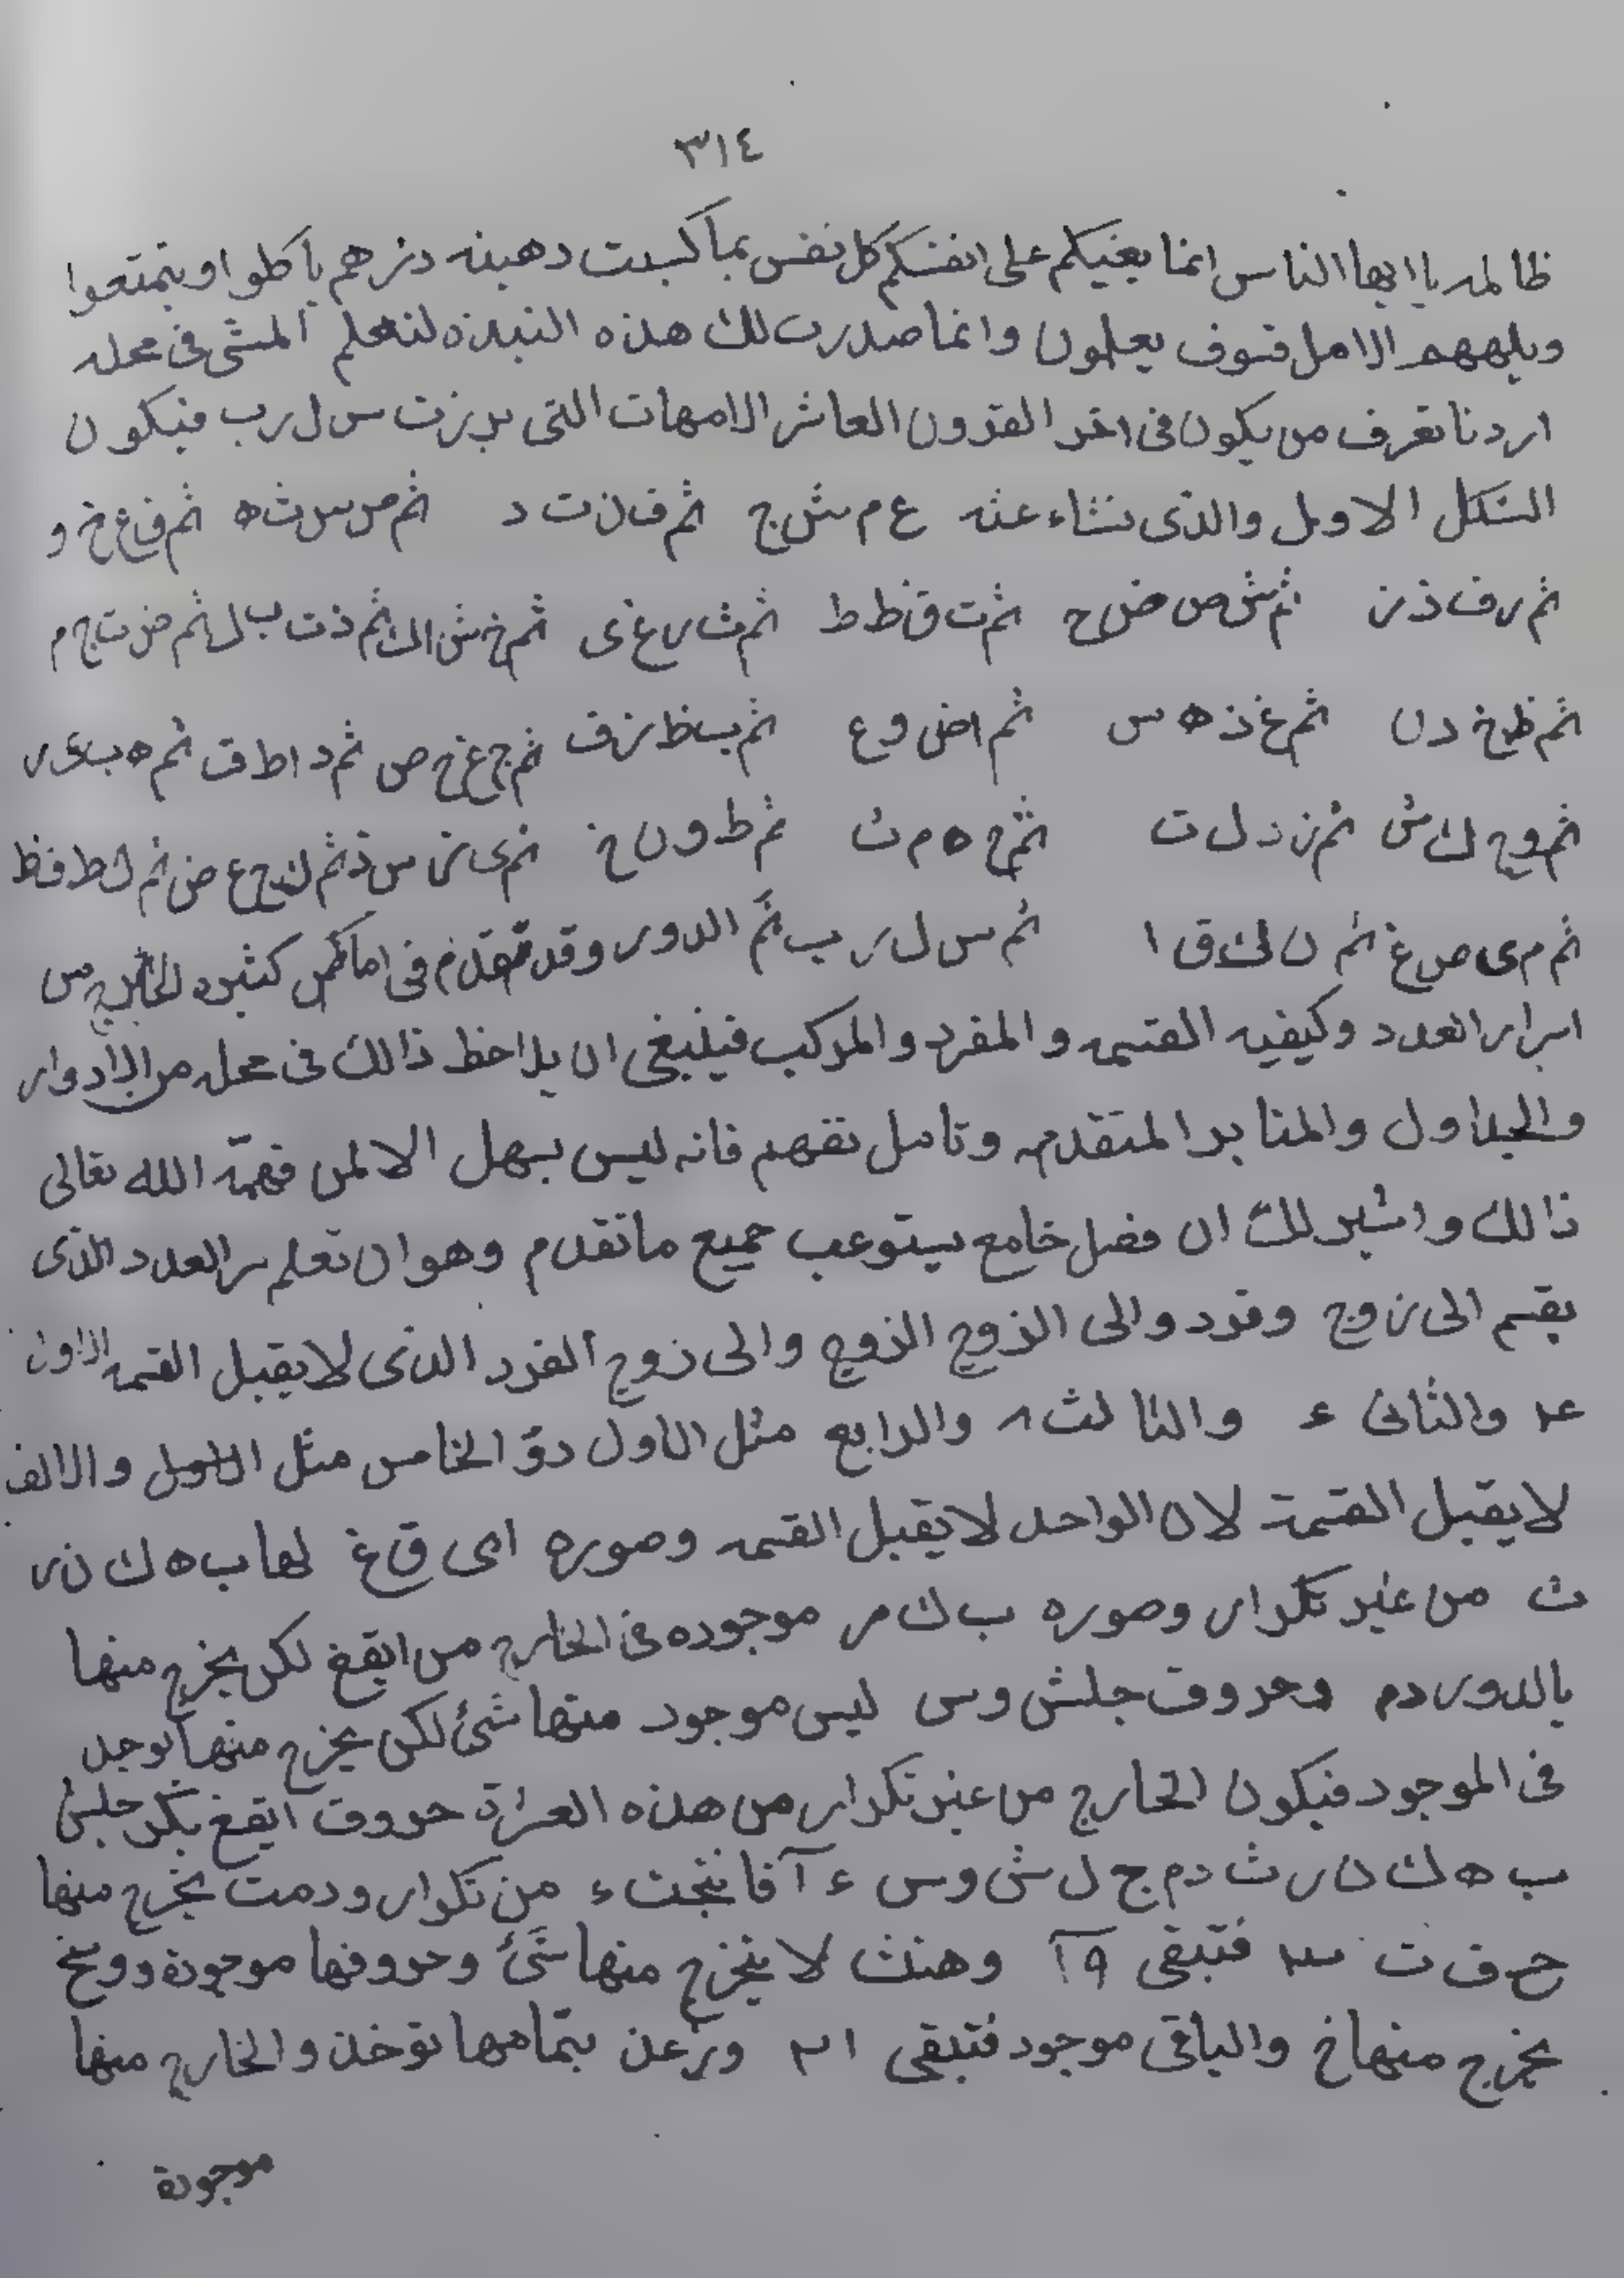 ٣١٤
ظالمه يا ايها الناس انما بغيكم على انفسكم كل نفس بما كسبت رهينه ذرهم ياكلوا ويتمتعوا
ويلههم الامل فسوف يعلمون وانما صدرت لك هذه النبذه لتعلم المشى فى محله
اردنا نعرف من يكون فى اخر القرون العاشر الامهات التى برزت س ل ر ب فيكون
الشكل الاول والذى نشاء عنه ع م ش ج ثم ف ن ت د ثم ص س ث ه ثم ق ع خ و
ثم ر ف ذ ز ثم ش ص ض ح ثم ت ق ظ ط ثم ث ر غ ى ثم خ ش ا ك ثم ذ ت ب ل ثم ض ث ج م
ثم ظ خ د ن ثم غ ذ ه س ثم ا ض و ع ثم ب ظ ز ف ثم ج غ ح ص ثم د ا ط ق ثم ه ب ى ر
ثم و ج ك ش ثم ز د ل ت ثم ح ه م ث ثم ط و ن خ ثم ى ز س ذ ثم ك ح ع ض ثم ل ط ف ظ
ثم م ى ص غ ثم ن ك ق ا ثم س ل ر ب تم الدور وقد تقدم فى اماكن كثيره الخارج من
اسرار العدد وكيفيه القسمه والمفرد والمركب فينبغى ان يلاحظ ذالك فى محله من الادوار
والجداول والمنابر المتقدمه وتامل تفهم فانه ليس بسهل الا لمن فهمه الله تعالى
ذالك واشير لك ان فصل خامع يستوعب جميع ما تقدم وهو ان تعلم سر العدد الذى
يقسم الى زوج وفرد والى الزوج الزوج والى زوج الفرد الذى لا يقبل القسمه الاول
والثانى ء والثالث ٨ والرابع مثل الاول الخامس مثل الاول والالف
لا يقبل القسمة لان الواحد لا يقبل القسمه وصوره ا ى ق غ لها ب ه ك ن ر
ث من غير تكرار وصوره ب ك ر موجوده فى الخارج من ايقغ لكن يخرج منها
بالدور د م وحروف جلش وس ليس موجود منها شئ لكن يخرج منها توجد
فى الموجود فيكون الخارج من غير تكرار من هذه العشرة حروف ايقغ بكر جلش
ب ه ك ن ر ث د م ج ل ش و س ء من تكرار ودمت يخرج منها
ح ف ت فتبقى وهنث لا يخرج منها شئ وحروفها موجودة ووسخ
يخرج منها خ والباقى موجود فتبقى وزعذ بتمامها توخذ والخارج منها
موجودة